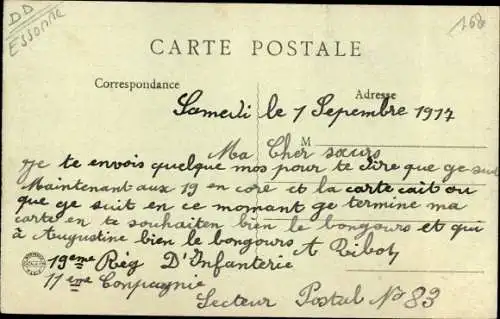 DD
ESSONNE
168
CARTE POSTALE
Correspondance
Adresse
Samedi le 1 Sepembre 1917
M
Ma Cher sœurs
Je te envois quelque mos pour te dire que ge sui
Maintenant aux 19 en core et la carte cait ou
que ge suit en ce momant ge termine ma
carte en te souhaiten bien le bongours et qui
à Augustine bien le bongours A Ribot
19eme Rég D'Infanterie
11 eme Conpagnie
Secteur Postal No 83